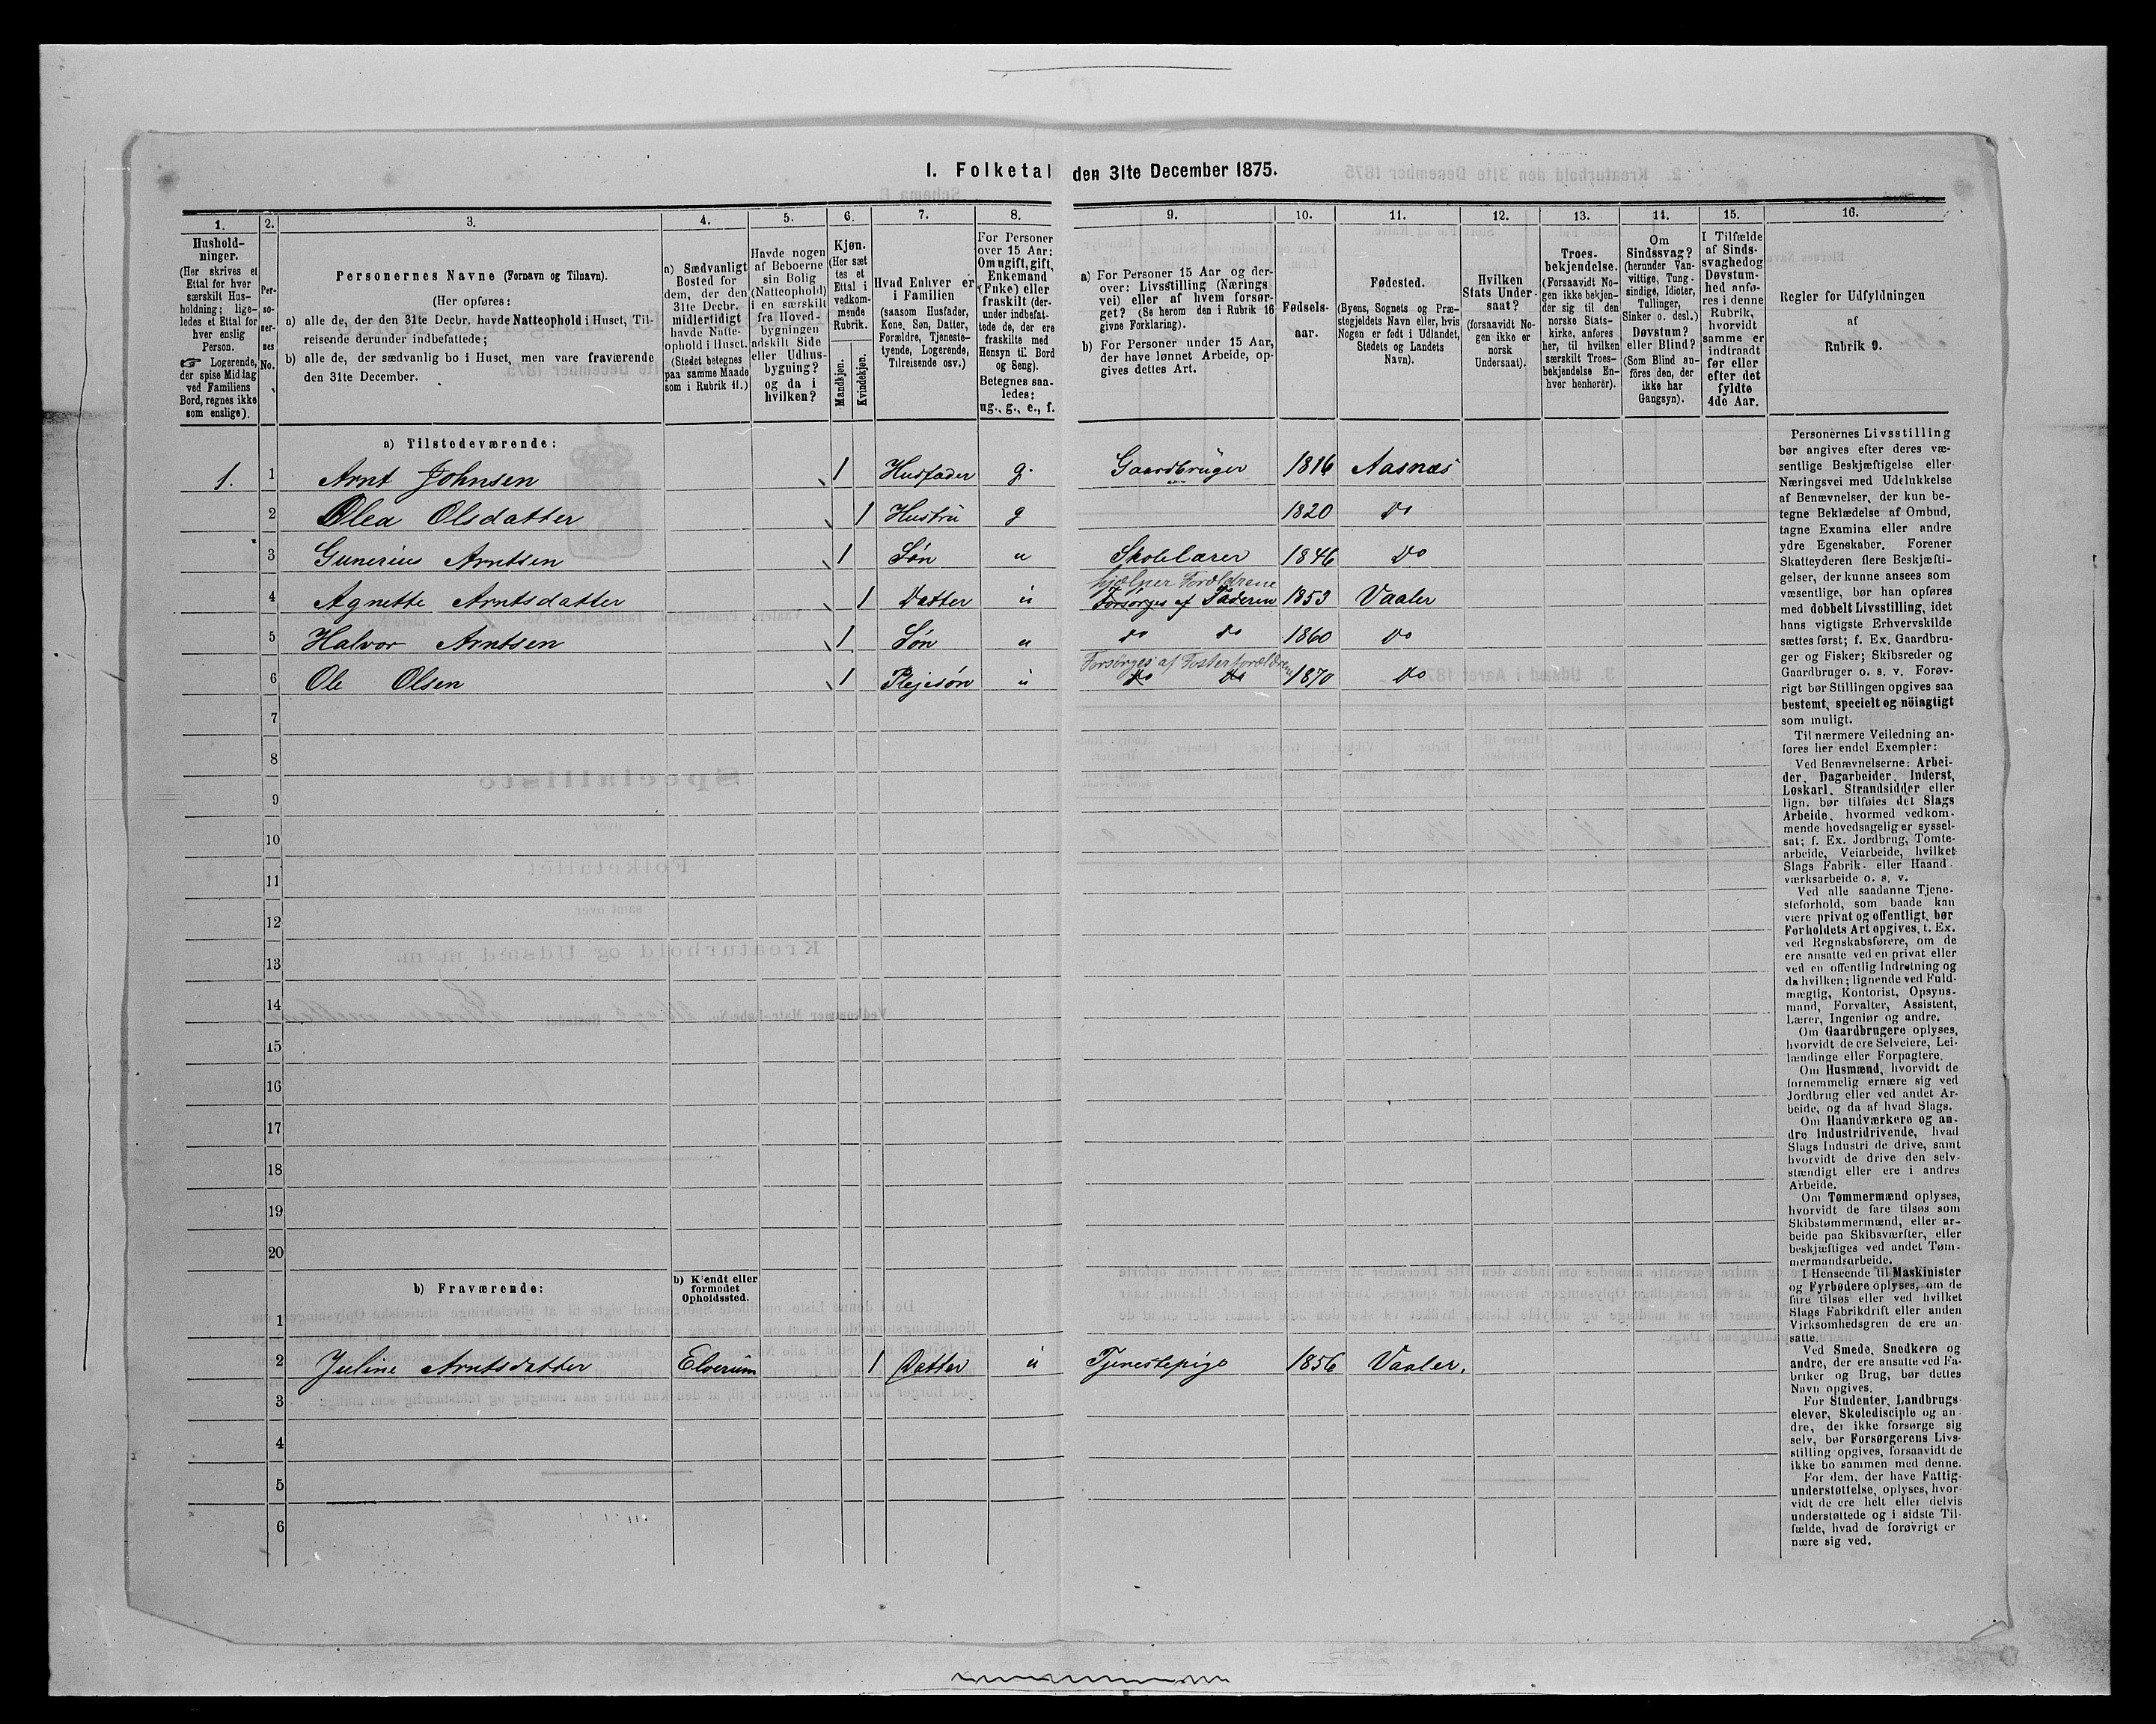 I. Folketal den 31te December 1875.
1.
2.
3.
4.
5.
6.
7.
8.
9.
10.
11.
12.
13.
14.
15.
16.
Hushold-
ninger.
(Her skrives et
Ettal for hver
særskilt Hus-
holdning; lige-
ledes et Ettal for
hver enslig
Person.
☞ Logerende,
der spise Middag
ved Familiens
Bord, regnes ikke
som enslige).
Per-
so-
ner-
nes
No.
Personernes Navne (Fornavn og Tilnavn).
(Her opføres:
a) alle de, der den 31te Decbr. havde Natteophold i Huset, Til-
reisende derunder indbefattede;
b) alle de, der sædvanlig bo i Huset, men vare fraværende
den 31te December.
a) Sædvanligt
Bosted for
dem, der den
31te Decbr.
midlertidigt
havde Natte-
ophold i Huset.
(Stedet betegnes
paa samme Maade
som i Rubrik 11.)
Havde nogen
af Beboerne
sin Bolig
(Natteophold)
i en særskilt
fra Hoved-
bygningen
adskilt Side
eller Udhus-
bygning?
og da i
hvilken?
Kjøn.
(Her sæt
tes et
Ettal i
vedkom-
mende
Rubrik.
Mandkjøn.
Kvindekjøn.
Hvad Enhver er
i Familien
(saasom Husfader,
Kone, Søn, Datter,
Forældre, Tjeneste-
tyende, Logerende,
Tilreisende osv.)
For Personer
over 15 Aar:
Om ugift, gift,
Enkemand
(Enke) eller
fraskilt (der-
under indbefat-
tede de, der ere
fraskilte med
Hensyn til Bord
og Seng).
Betegnes saa-
ledes:
ug., g., e., f.
a) For Personer 15 Aar og der-
over: Livsstilling (Nærings
vei) eller af hvem forsør-
get? (Se herom den i Rubrik 16
givne Forklaring).
b) For Personer under 15 Aar,
der have lønnet Arbeide, op-
gives dettes Art.
Fødsels-
aar.
Fødested.
(Byens, Sognets og Præ-
stegjeldets Navn eller, hvis
Nogen er født i Udlandet,
Stedets og Landets
Navn).
Hvilken
Stats Under-
saat?
(forsaavidt No-
gen ikke er
norsk
Undersaat).
Troes-
bekjendelse.
(Forsaavidt No-
gen ikke bekjen-
der sig til den
norske Stats-
kirke, anføres
her, til hvilken
særskilt Troes-
bekjendelse En-
hver henhører).
Om
Sindssvag?
(herunder Van-
vittige, Tung-
sindige, Idioter,
Tullinger,
Sinker o. desl.)
Døvstum?
eller Blind?
(Som Blind an-
føres den, der
ikke har
Gangsyn).
I Tilfælde
af Sinds-
svaghed og
Døvstum-
hed anfø-
res i denne
Rubrik,
hvorvidt
samme er
indtraadt
før eller
efter det
fyldte
4de Aar.
Regler for Udfyldningen
af
Rubrik 9.
a) Tilstedeværende:
1. 1 Arnt Johnsen 1 Husfader g. Gaardbruger 1816 Aasnæs
2 Olea Olsdatter 1 Hustru g 1820 do
3 Gunerius Arntsen 1 Søn u Skolelærer 1846 do
hjælper Forældrene
4 Agnette Arntsdatter 1 Datter u Forsørges af Faderen 1853 Vaaler
5 Halvor Arntsen 1 Søn u do do 1860 do
Forsørges af Fosterforældrene
6 Ole Olsen 1 Plejesøn u do do 1870 do
7
8
9
10
11
12
13
14
15
16
17
18
19
20
b) Fraværende:
b) Kjendt eller
formodet
Opholdssted.
1
2 Juline Arntsdatter Elverum 1 Datter u Tjenestepige 1856 Vaaler.
3
4
5
6
Personernes Livsstilling
bør angives efter deres væ-
sentlige Beskjæftigelse eller
Næringsvei med Udelukkelse
af Benævnelser, der kun be-
tegne Beklædelse af Ombud,
tagne Examina eller andre
ydre Egenskaber. Forener
Skatteyderen flere Beskjæfti-
gelser, der kunne ansees som
væsentlige, bør han opføres
med dobbelt Livsstilling, idet
hans vigtigste Erhvervskilde
sættes først; f. Ex. Gaardbru-
ger og Fisker; Skibsreder og
Gaardbruger o. s. v. Forøv-
rigt bør Stillingen opgives saa
bestemt, specielt og nöiagtigt
som muligt.
Til nærmere Veiledning an-
føres her endel Exempler:
Ved Benævnelserne: Arbei-
der, Dagarbeider, Inderst,
Løskarl, Strandsidder eller
lign. bør tilføies det Slags
Arbeide, hvormed vedkom-
mende hovedsagelig er syssel-
sat; f. Ex. Jordbrug, Tomte-
arbeide, Veiarbeide, hvilket
Slags Fabrik- eller Haand-
værksarbeide o. s. v.
Ved alle saadanne Tjene-
steforhold, som baade kan
være privat og offentligt, bør
Forholdets Art opgives, t. Ex.
ved Regnskabsførere, om de
ere ansatte ved en privat eller
ved en offentlig Indretning og
da hvilken; lignende ved Fuld-
mægtig, Kontorist, Opsyns-
mand, Forvalter, Assistent,
Lærer, Ingeniør og andre.
Om Gaardbrugere oplyses,
hvorvidt de ere Selveiere, Lei-
lændinge eller Forpagtere.
Om Husmænd, hvorvidt de
fornemmelig ernære sig ved
Jordbrug eller ved andet Ar-
beide, og da af hvad Slags.
Om Haandværkere og an-
dre Industridrivende, hvad
Slags Industri de drive, samt
hvorvidt de drive den selv-
stændigt eller ere i andres
Arbeide.
Om Tømmermænd oplyses,
hvorvidt de fare tilsøs som
Skibstømmermænd, eller ar-
beide paa Skibsværfter, eller
beskjæftiges ved andet Tøm-
mermandsarbeide.
I Henseende til Maskinister
og Fyrbødere oplyses, om de
fare tilsøs eller ved hvilket
Slags Fabrikdrift eller anden
Virksomhedsgren de ere an-
satte.
Ved Smede, Snedkere og
andre, der ere ansatte ved Fa-
briker og Brug, bør dettes
Navn opgives.
For Studenter, Landbrugs-
elever, Skoledisciple og an-
dre, der ikke forsørge sig
selv, bør Forsørgerens Livs-
stilling opgives, forsaavidt de
ikke bo sammen med denne.
For dem, der have Fattig-
understøttelse, oplyses, hvor-
vidt de ere helt eller delvis
understøttede og i sidste Til-
fælde, hvad de forøvrigt er
nære sig ved.